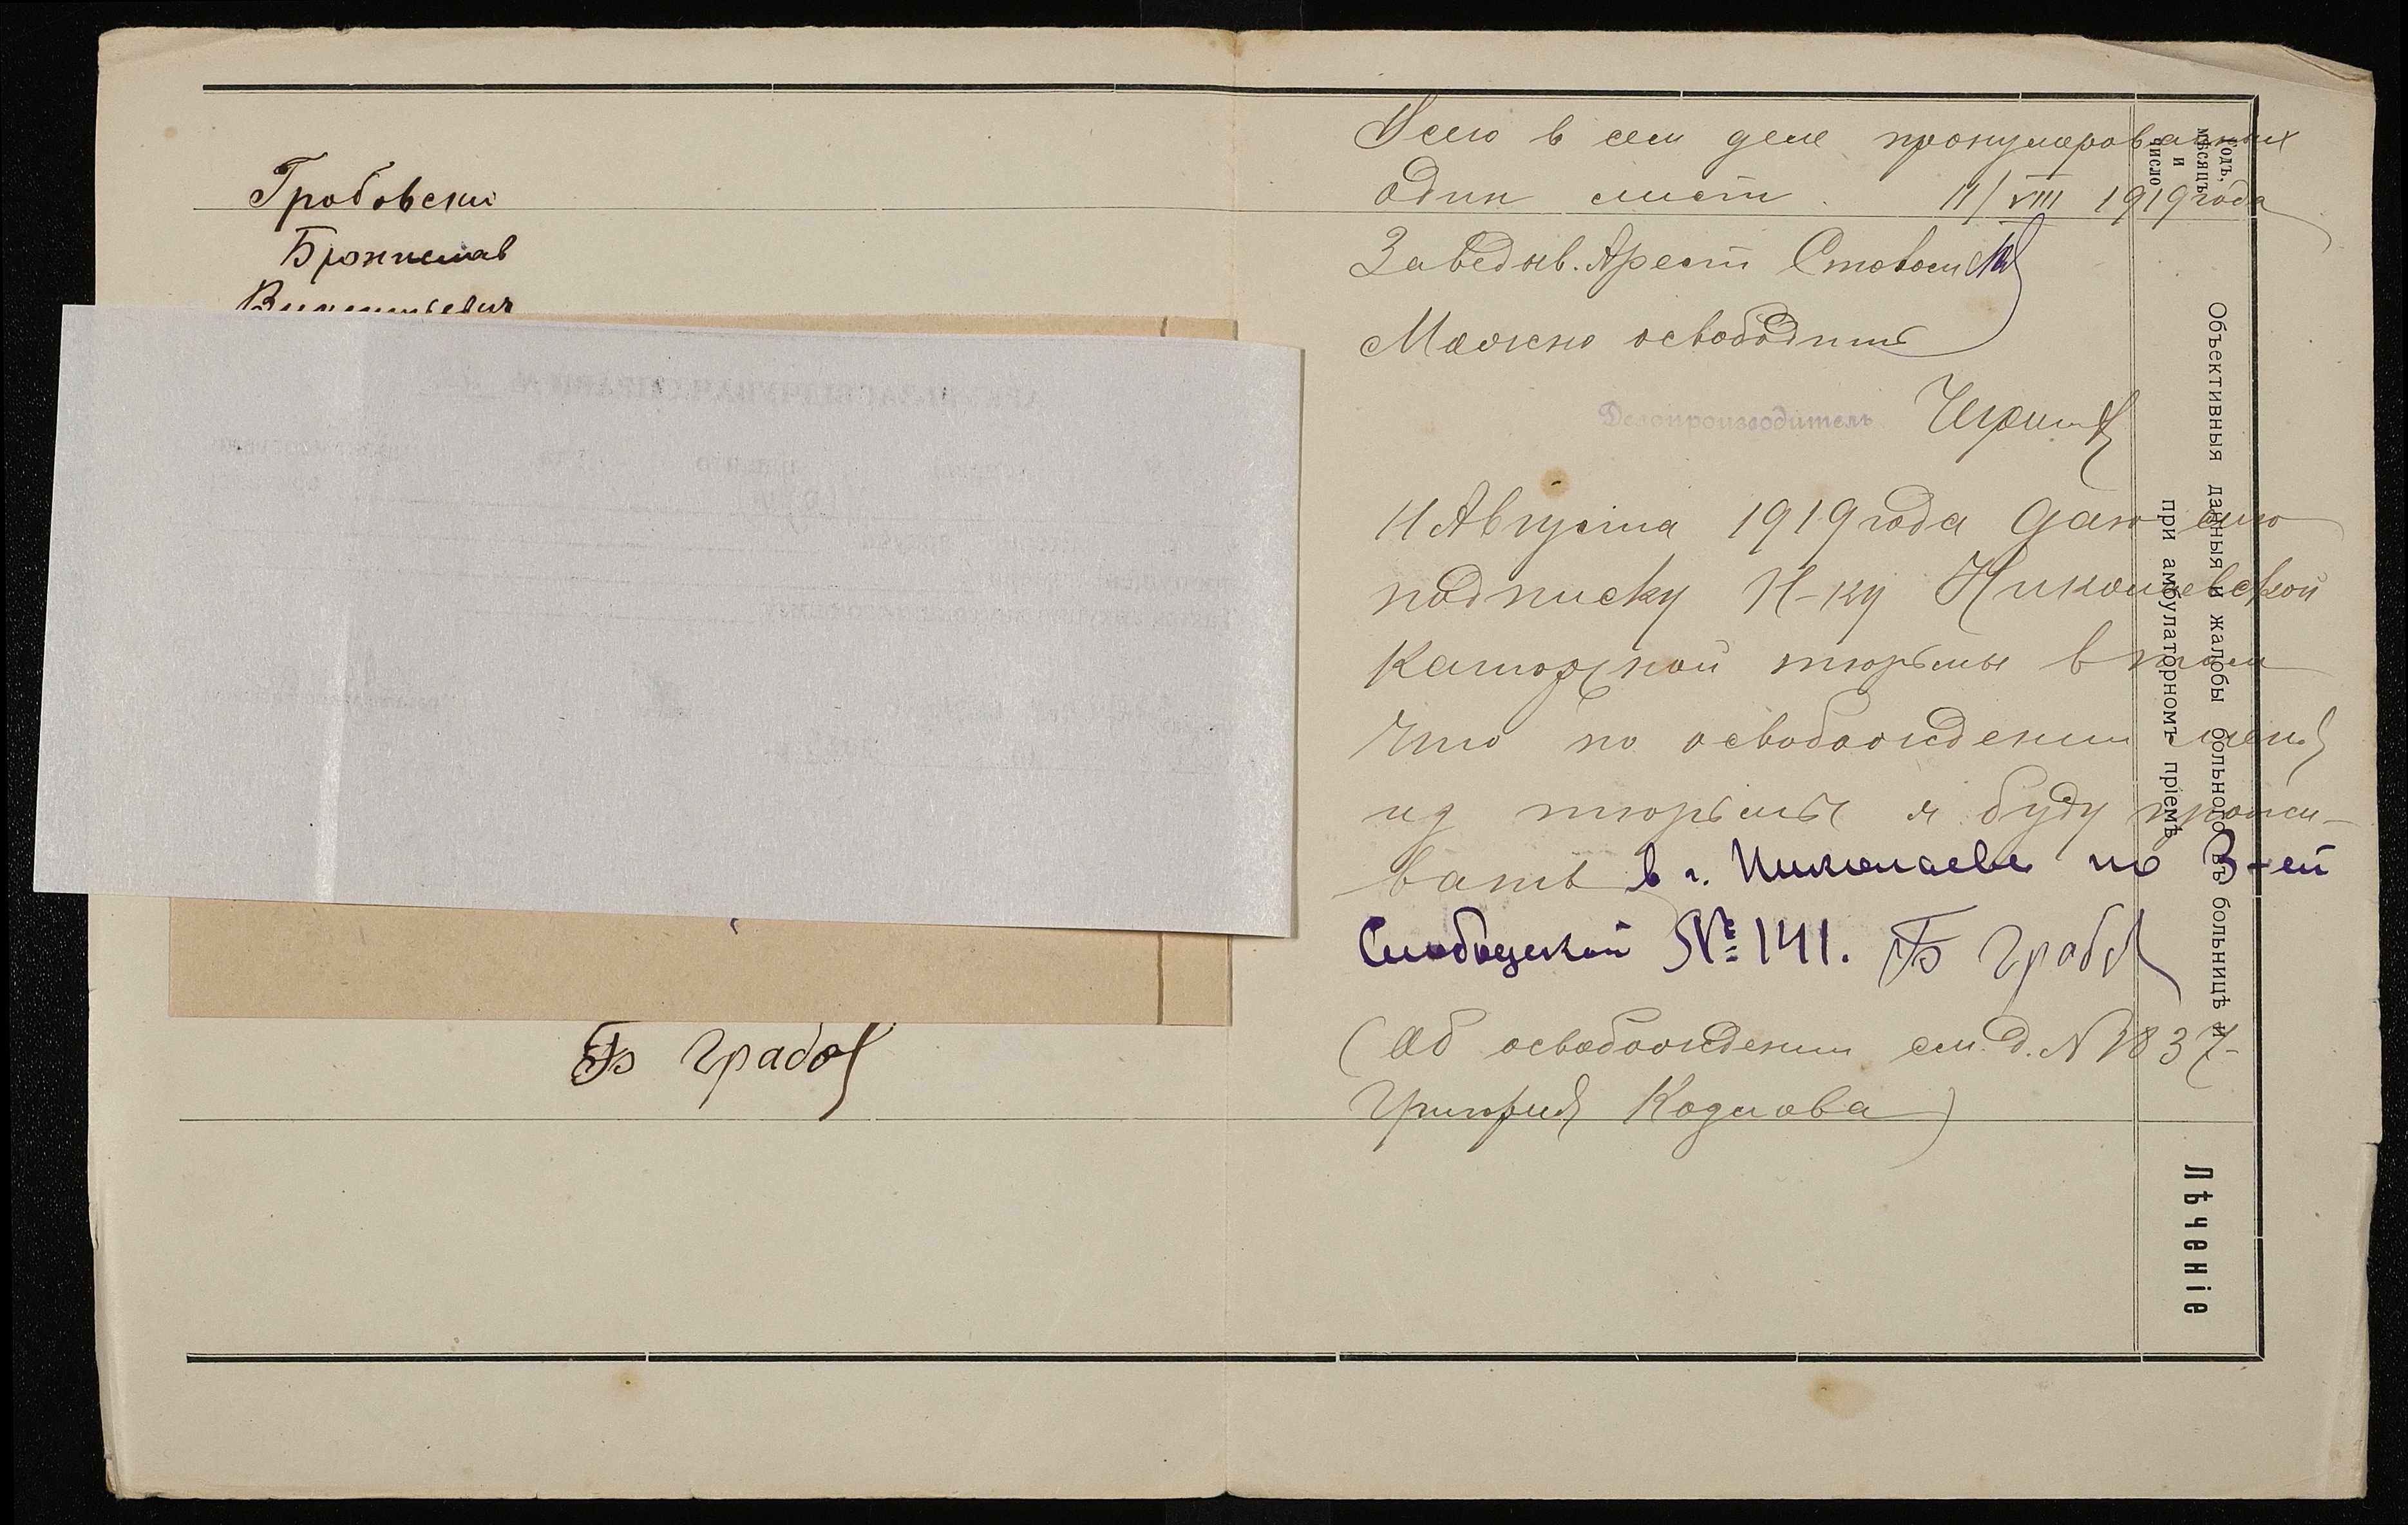 Грабовски
Бронислав
Викентьевич
Б Грабов
Всего в сем деле пронумерованных
один лист. 11/VIII 1919 года
Заведыв. Арест Столом
Можно освободить
Делопроизводитель
11 Августа 1919 года даю сию
подписку Н-ку Николаевской
Каторжной тюрьмы в том
что по освобождении меня
из тюрьмы я буду прожи-
вать в г. Николаеве по 3-ей
Слободской № 141. Б Грабов
(Об освобождении см. д. № 1837-
Григория Козлова)
Годъ,
мѣсяцъ
и
число
Объективныя данныя и жалобы больного въ больницѣ и
при амбулаторномъ пріемѣ
Лѣченіе